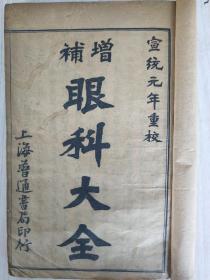 宣統元年重校
增補
眼科大全
上海普通書局印行